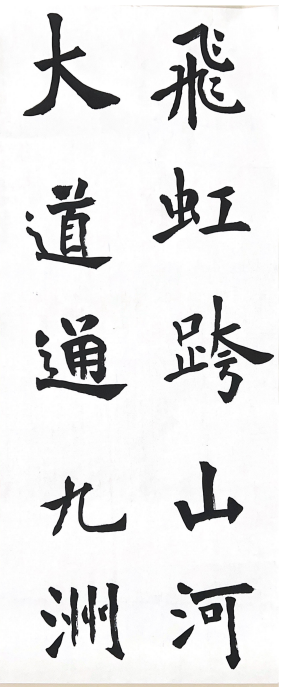 飛虹跨山河
大道通九洲